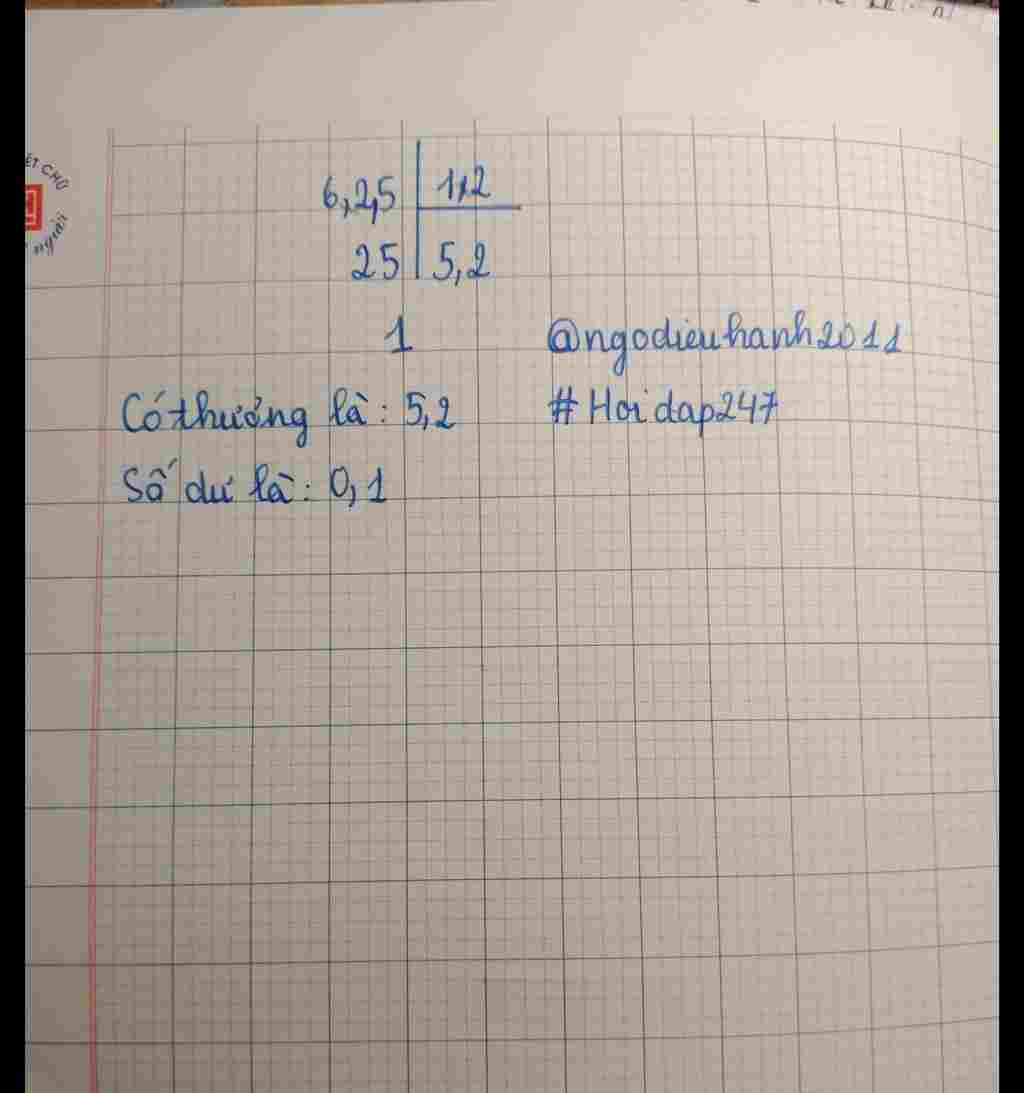 6,2,5 1,2
25 5,2
1 @ngodieuhanh2011
Có thương là : 5,2 #Hoidap247
Số dư là : 0,1